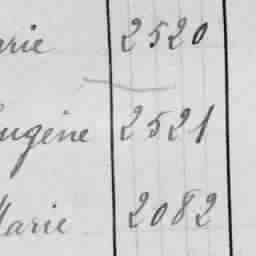 arie 2520
ugène 2521
Marie 2082